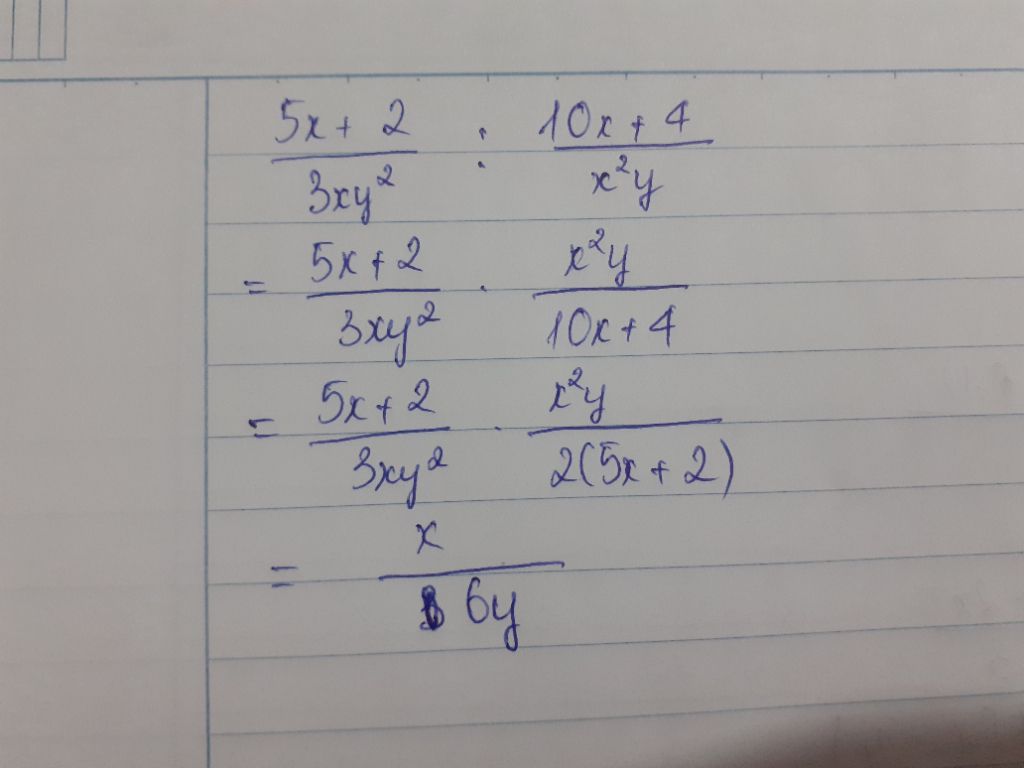 (5x + 2)/(3xy²) : (10x + 4)/(x²y)
= (5x + 2)/(3xy²) . (x²y)/(10x + 4)
= (5x + 2)/(3xy²) . (x²y)/(2(5x + 2))
= x/(6y)